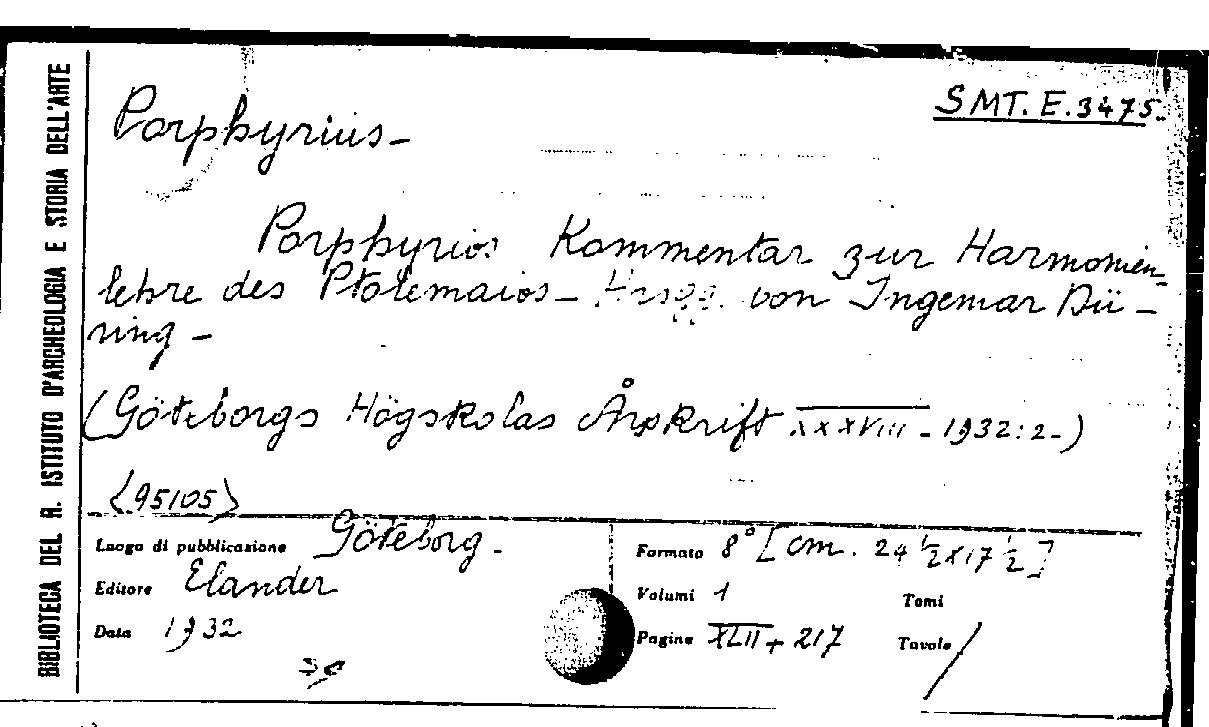 BIBLIOTECA DEL R. ISTITUTO D'ARCHEOLOGIA E STORIA DELL'ARTE
SMT. E. 3475.
Porphyrius-
Porphyrios Kommentar zur Harmonien-
lehre des Ptolemaios- Hrsgg. von Ingemar Dü-
ring -
(Göteborgs Högskolas Årsskrift XXXVIII - 1932:2-)
<95105>
Luogo di pubblicazione Göteborg.
Formato 8° [cm. 24 ½ x 17 ½]
Editore Elander
Volumi 1 Tomi
Data 1932
Pagine XLII + 217 Tavole /